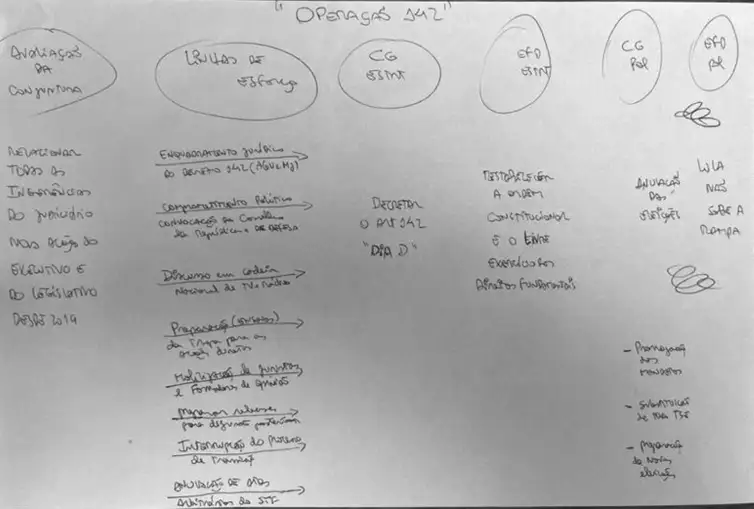 "OPERAÇÃO 142"
AVALIAÇÃO
DA
CONJUNTURA
LINHAS DE
ESFORÇO
CG
ESINT
EFD
ESINT
CG
POL
EFD
POL
RELACIONAR
TODAS AS
INGERÊNCIAS
DO JUDICIÁRIO
NAS AÇÕES DO
EXECUTIVO E
DO LEGISLATIVO
DESDE 2019
ENQUADRAMENTO JURÍDICO
DO DECRETO 142 (AGU e MJ)
Comprometimento Político
Convocação do Conselho
da República e DE DEFESA
Discurso em cadeia
Nacional de TV e Rádio
Preparação (ensaios)
da Tropa para as
ações diretas
Mobilização de juristas
e formadores de opinião
Preparar
para posteriores
Interrupção do Processo
de Transição
ANULAÇÃO DE atos
arbitrários do STF
DECRETAR
O ART 142
"DIA D"
RESTABELECER
A ORDEM
CONSTITUCIONAL
E O LIVRE
EXERCÍCIO DOS
DIREITOS FUNDAMENTAIS
ANULAÇÃO
DAS
ELEIÇÕES
- Prorrogação
dos
MANDATOS
- SUBSTITUIÇÃO
de todo TSE
- preparação
de Novas
eleições
LULA
NÃO
SOBE A
RAMPA